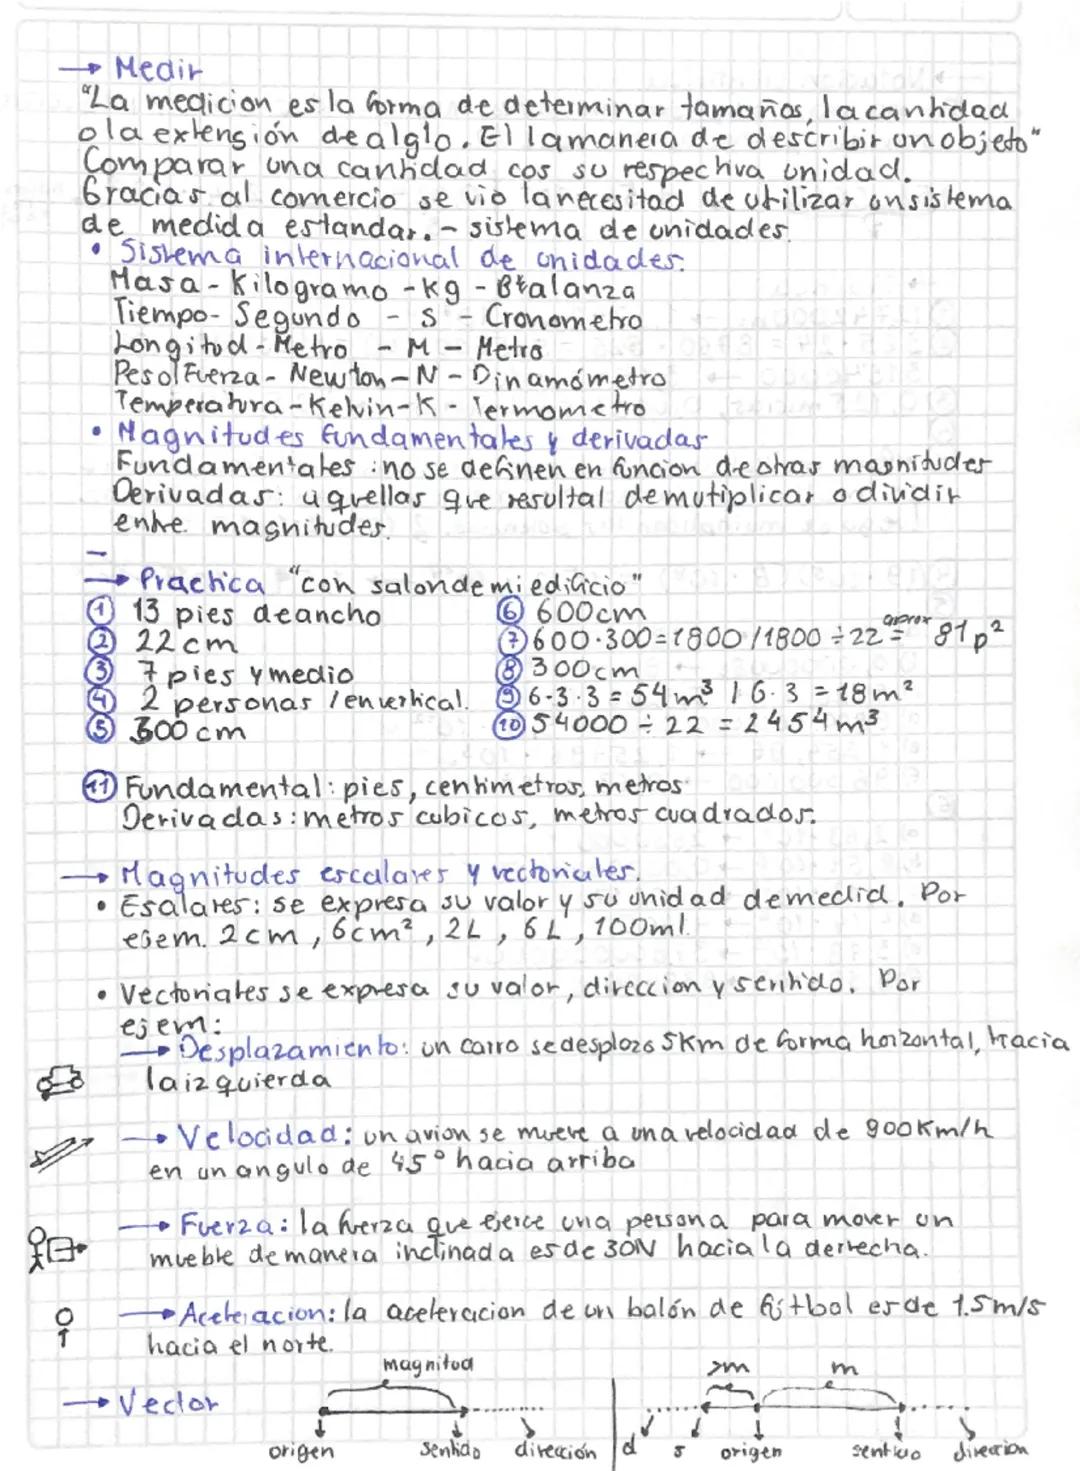 → Medir
"La medicion es la forma de determinar tamaños, la cantidad
o la extensión de alglo. El la manera de describir un objeto"
Comparar una cantidad cos su respectiva unidad.
Gracias al comercio se vio la necesitad de utilizar un sistema
de medida estandar. - sistema de unidades.
• Sistema internacional de unidades:
Masa - Kilogramo - Kg - Btalanza
Tiempo - Segundo - S - Cronometro
Longitud - Metro - M - Metro
Peso/Fuerza - Newton - N - Dinamómetro
Temperatura - Kelvin - K - Termometro
• Magnitudes fundamentales y derivadas
Fundamentales: no se definen en funcion de otras magnitudes
Derivadas: aquellas que resultal de mutiplicar o dividir
entre magnitudes.
→ Practica "con salon de mi edificio"
① 13 pies de ancho
② 22 cm
③ 7 pies y medio
④ 2 personas / en vertical.
⑤ 300 cm
⑥ 600 cm
⑦ 600·300=1800 / 1800 ÷ 22 = aprox 81 p²
⑧ 300 cm
⑨ 6·3·3 = 54 m³ / 6·3 = 18 m²
⑩ 54000 ÷ 22 = 2454 m³
⑪ Fundamental: pies, centimetros, metros
Derivadas: metros cubicos, metros cuadrados.
→ Magnitudes escalares y vectoriales.
• Esalares: se expresa su valor y su unidad de medid. Por
ejem. 2cm, 6cm², 2L, 6L, 100ml.
• Vectoriales se expresa su valor, direccion y sentido. Por
ejem:
→ Desplazamiento: un carro se desplozo 5Km de forma horizontal, hacia
la izquierda
→ Velocidad: un avion se mueve a una velocidad de 900Km/h
en un angulo de 45° hacia arriba
→ Fuerza: la fuerza que ejerce una persona para mover un
mueble de manera inclinada es de 30N hacia la derrecha.
→ Aceleracion: la aceleracion de un balón de fútbol es de 1.5m/s
hacia el norte.
→ Vector
magnitud
origen sentido dirección
>m m
d s origen sentido direccion